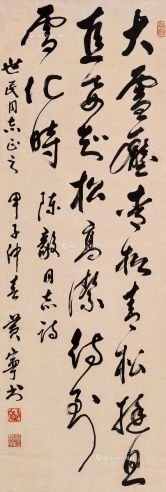 大雪壓青松青松挺且
直要知松高潔待到
雪化時 陈毅同志诗
世民同志正之 甲子仲春 黄寧书